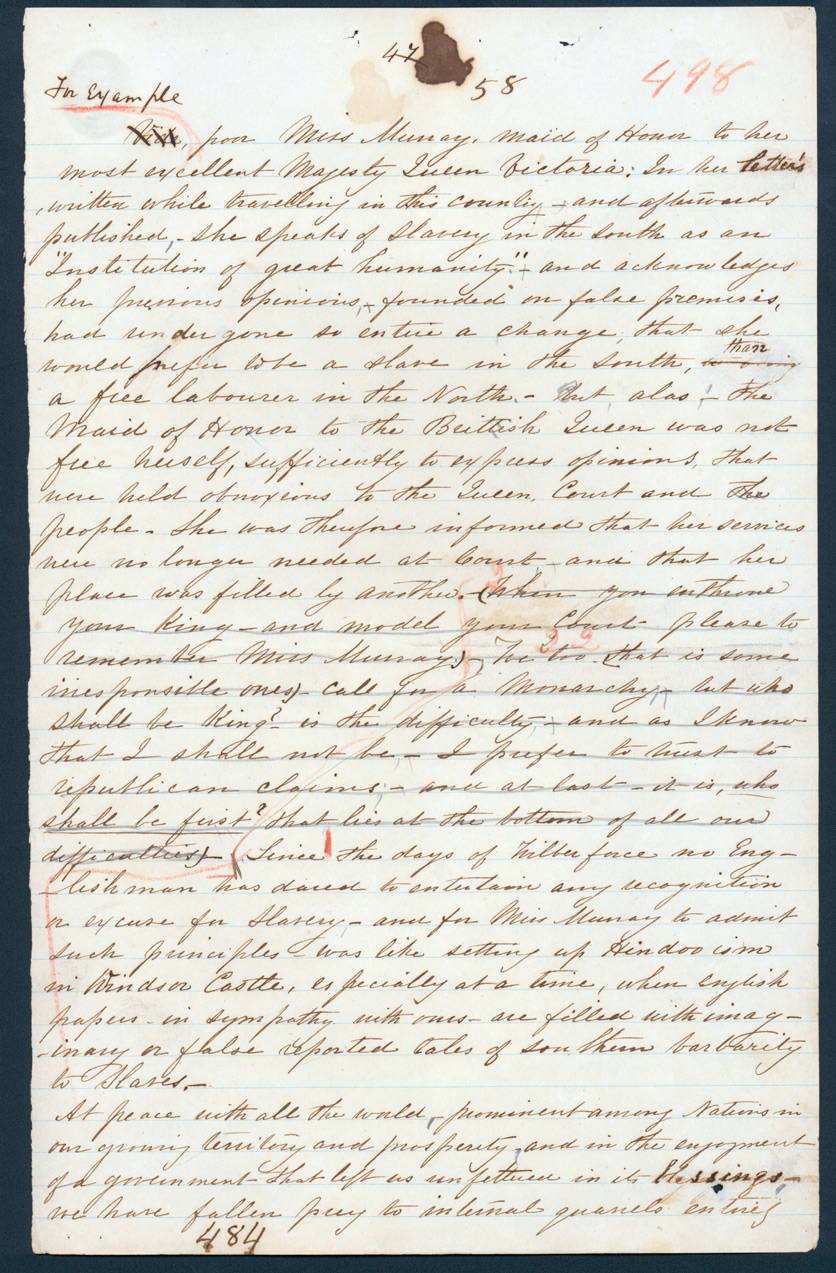 47
58
498
For Example
poor Miss Murray, maid of Honor to her
most excellent Majesty Queen Victoria: In her letter's
written while travelling in this country - and afterwards
published, - she speaks of Slavery in the South as an
"Institution of great humanity." - and acknowledges
her previous opinions, - founded on false premises,
had undergone so entire a change, that she
would prefer to be a slave in the South, than
a free labourer in the North. - But, alas! - the
Maid of Honor to the British Queen was not
free herself, sufficiently to express opinions, that
were held obnoxious to the Queen, Court and the
people - She was therefore informed that her services
were no longer needed at Court, - and that her
place was filled by another. - (When you enthrone
your King - and model your Court please to
remember Miss Murray) We too (that is some
irresponsible ones) - call for a Monarchy, - but who
shall be King? - is the difficulty, - and as I know
that I shall not be, - I prefer to trust to
republican claims; - and at last - it is, who
shall be first? that lies at the bottom of all our
difficulties) - Since the days of Wilberforce no Eng-
-lishman has dared to entertain any recognition
or excuse for Slavery, - and for Miss Murray to admit
such principles - was like setting up Hindooism
in Windsor Castle, especially at a time, when english
papers - in sympathy with ours - are filled with imag-
-inary or false reported tales of southern barbarity
to Slaves. -
At peace with all the world, - prominent among Nations in
our growing territory and prosperity, and in the enjoyment
of a government that left us unfettered in its blessings -
we have fallen prey to internal quarrels entirely
484